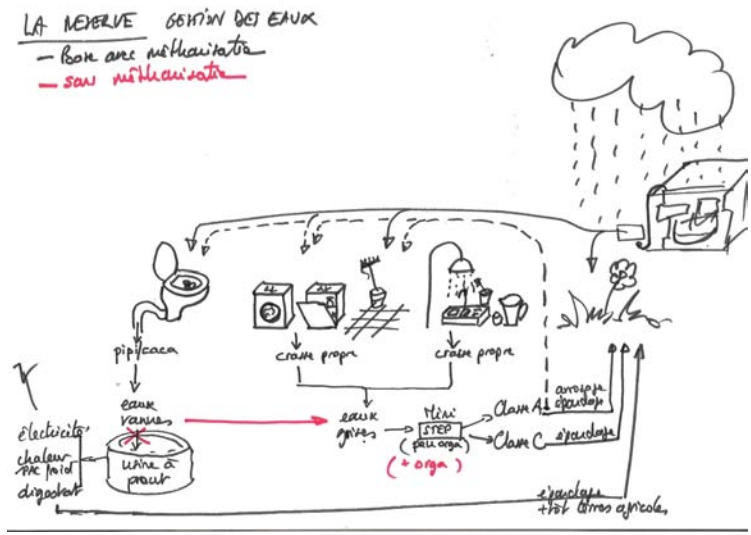 LA RESERVE GESTION DES EAUX
- Base avec méthanisation
- sans méthanisation
pipi/caca
crasse propre
crasse propre
eaux
vannes
eaux
grises
Mini
STEP
(peu orga)
(+ orga)
Classe A
arrosage
épandage
Classe C
épandage
électricité
chaleur
PAC froid
digestat
usine à
prout
épandage
terres agricoles